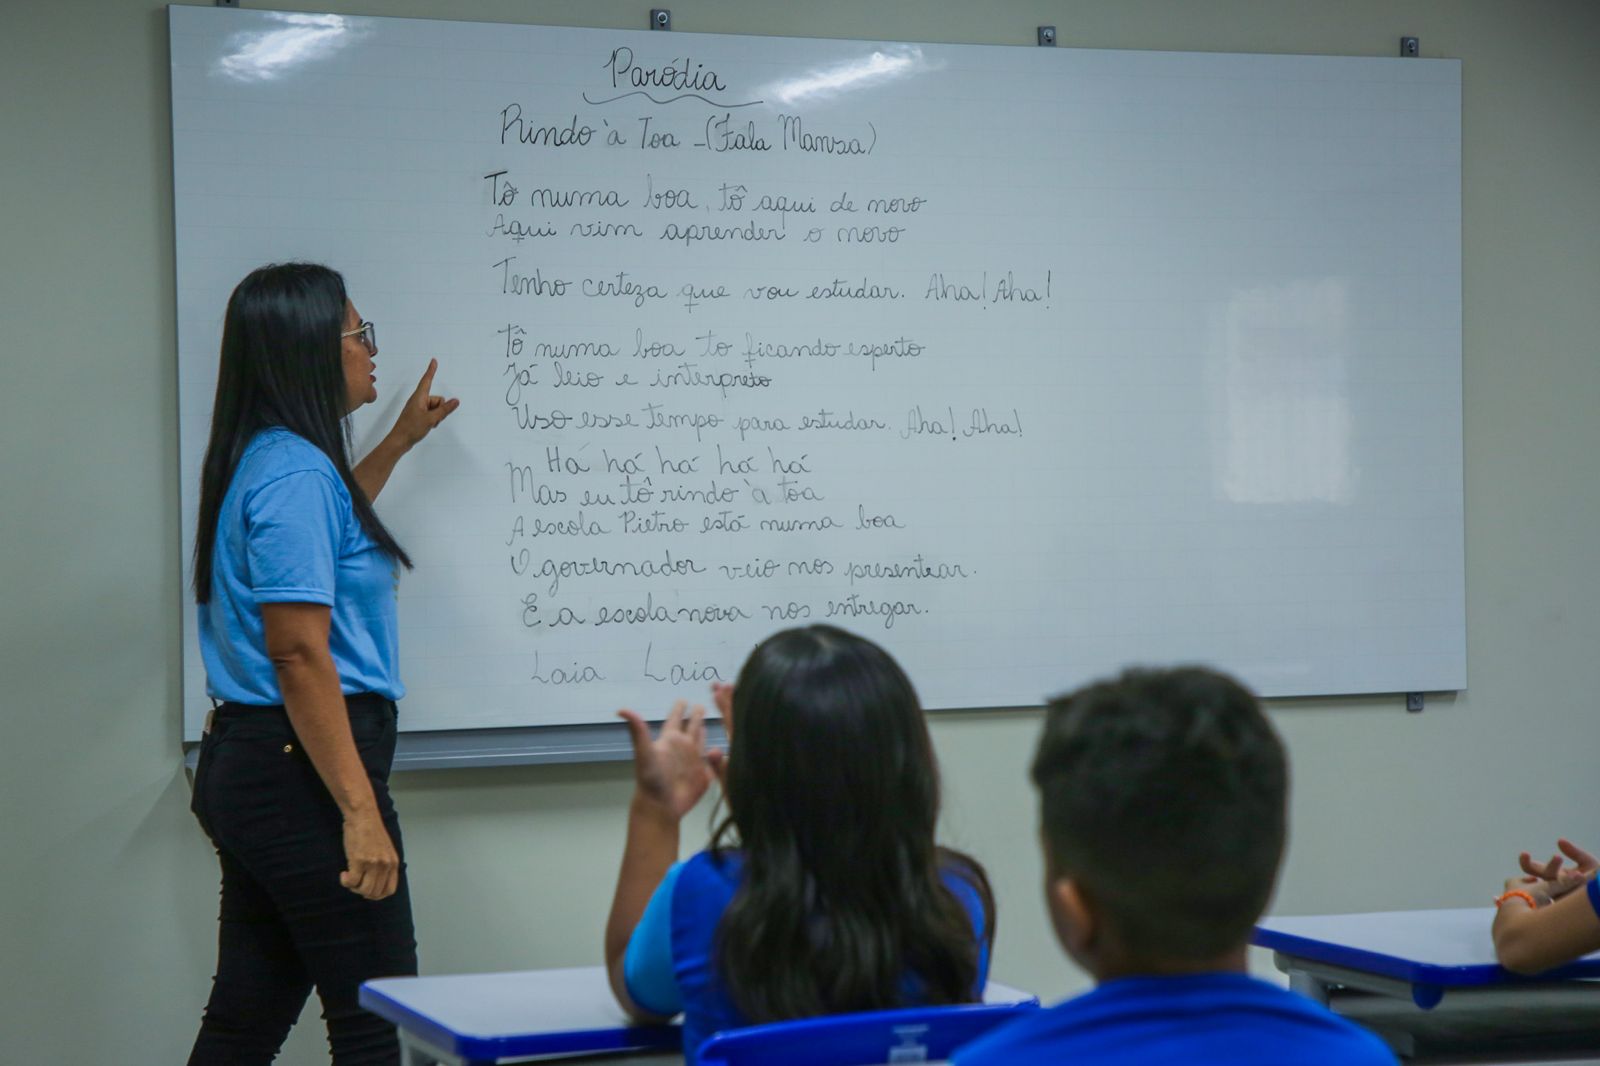 Paródia
Rindo à Toa - (Fala Mansa)
Tô numa boa, tô aqui de novo
Aqui vim aprender o novo
Tenho certeza que vou estudar. Aha! Aha!
Tô numa boa to ficando esperto
Já leio e interpreto
Uso esse tempo para estudar. Aha! Aha!
Há há há há há
Mas eu tô rindo à toa
A escola Pietro está numa boa
O governador veio nos presentear.
E a escola nova nos entregar.
Laia Laia